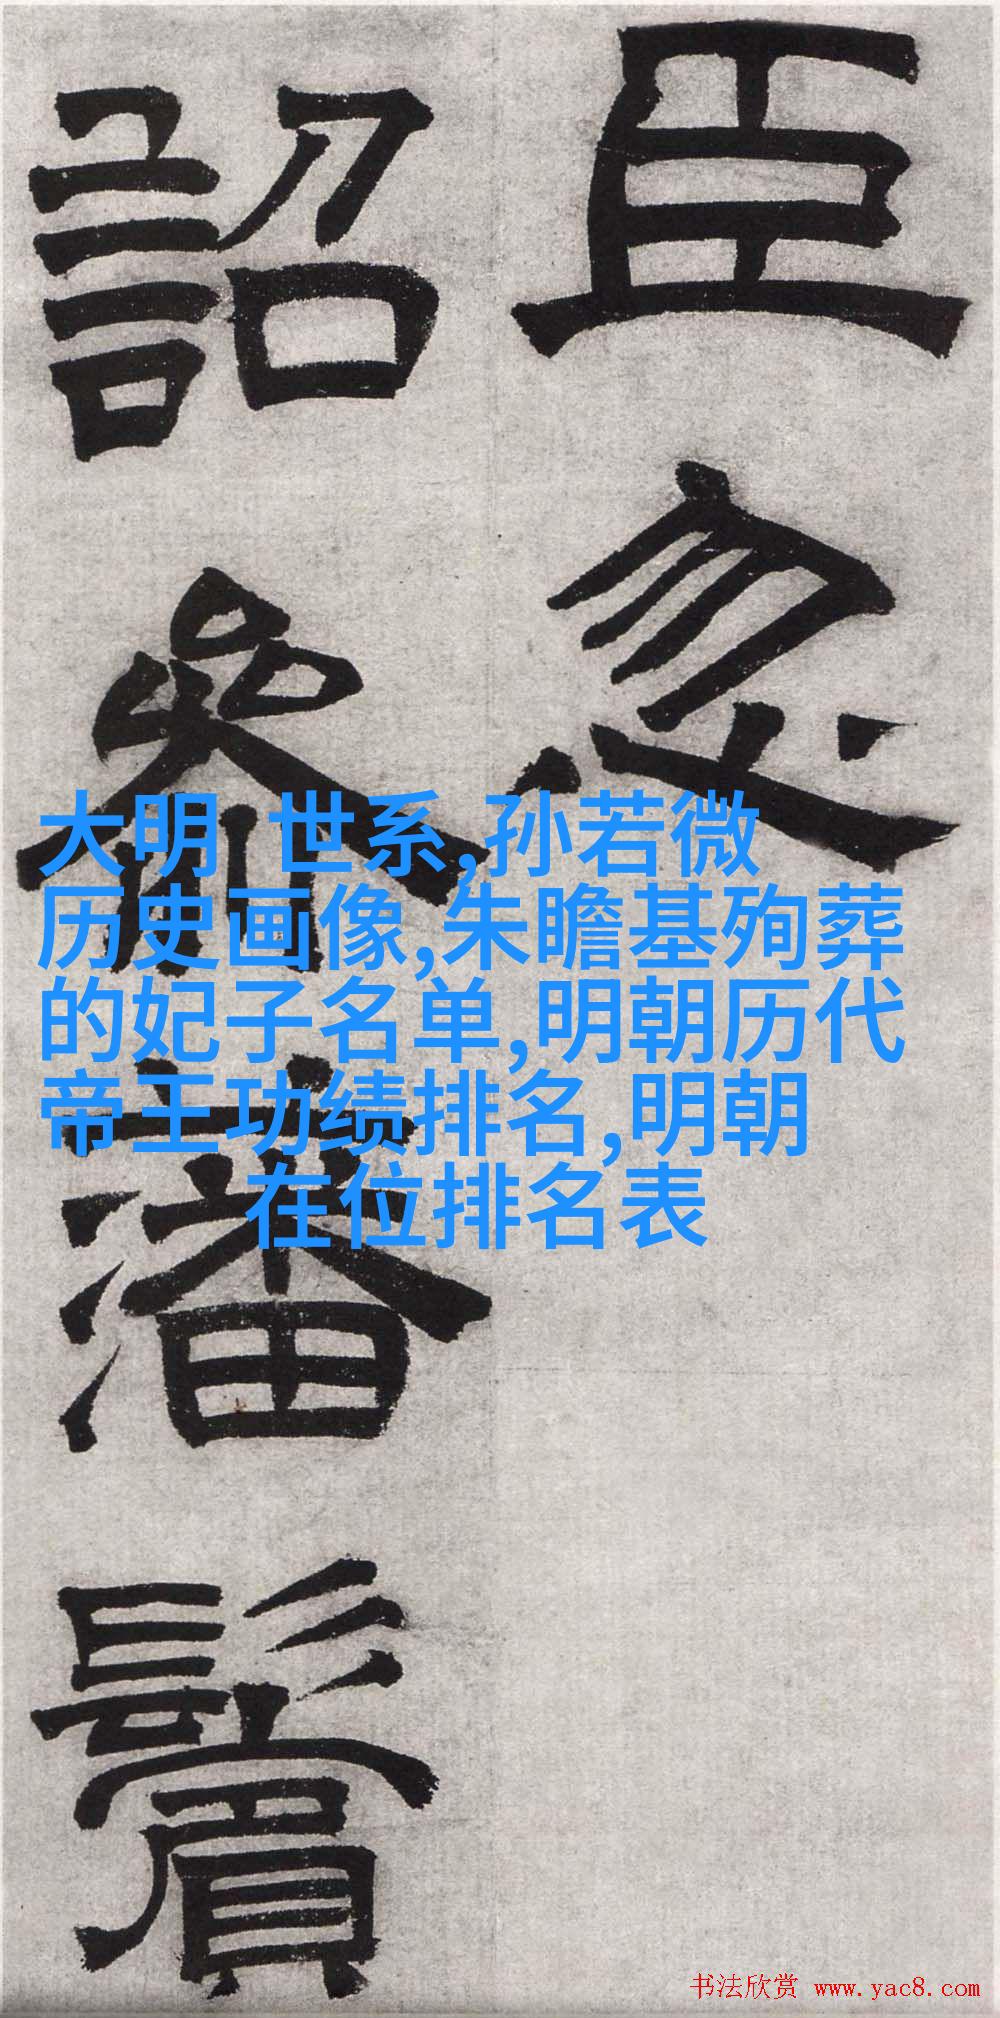 臣忽
詔參潘鬢
大明 世系,孙若微
历史画像,朱瞻基殉葬
的妃子名单,明朝历代
帝王功绩排名,明朝
在位排名表
书法欣赏 www.yac8.com